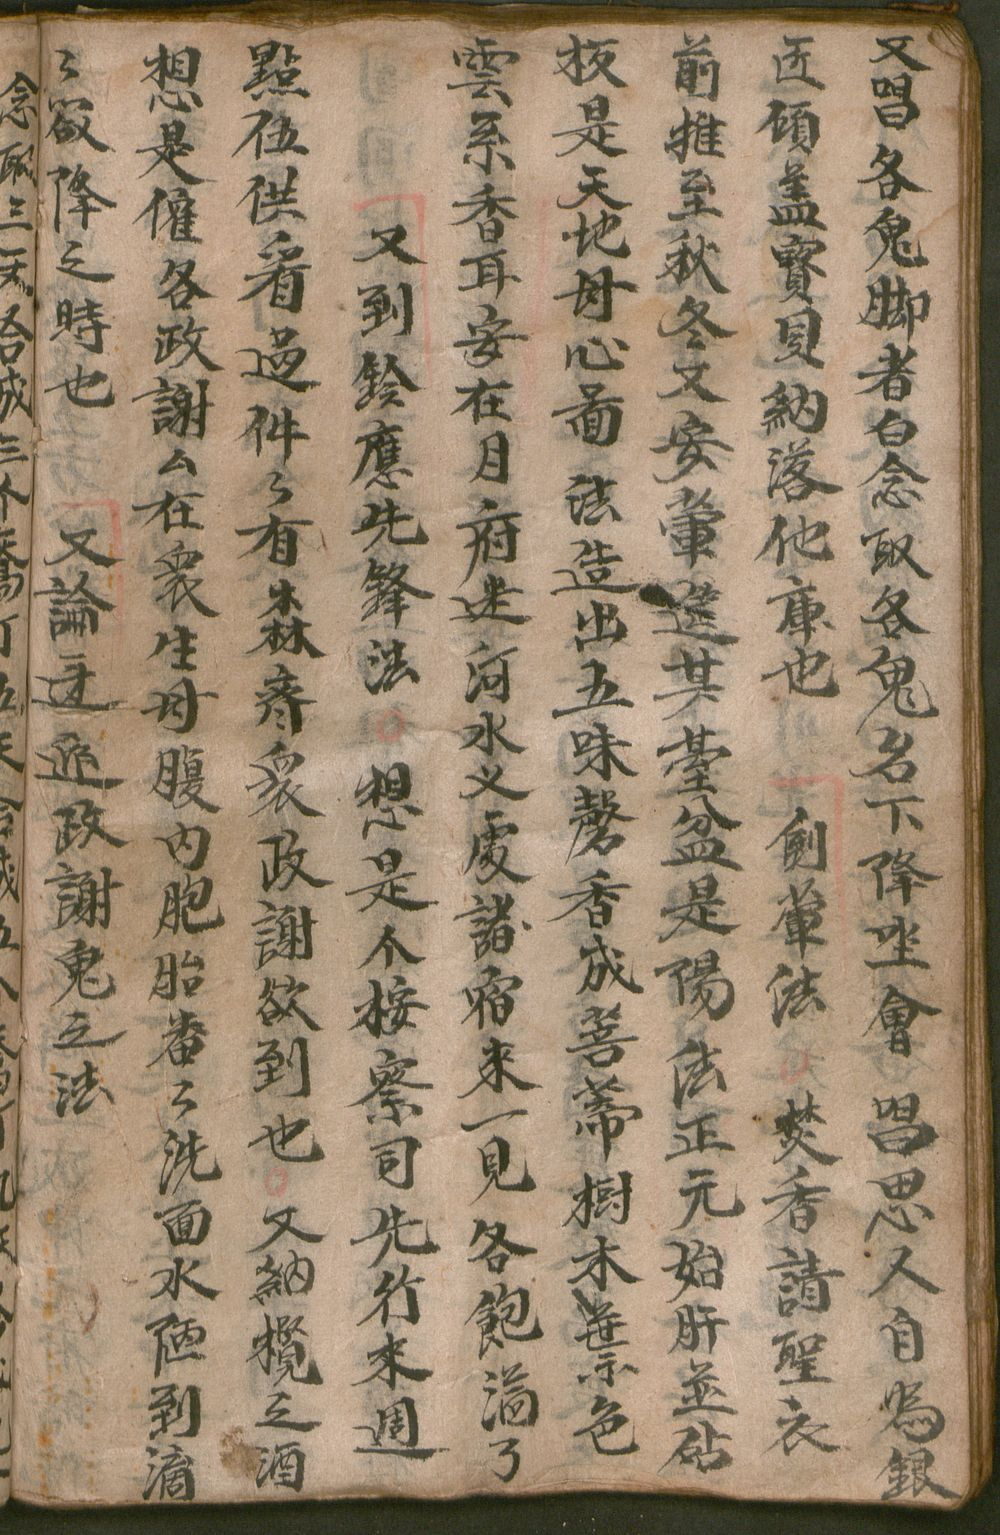 又唱各鬼脚者白念取各鬼名下降坐會 唱思人自為銀
匠傾盖寳貝納落他庫也 側葷法 焚香請聖衣
前推至秋冬又安葷選某臺盆是陽法正元始肝並砧
板是天地母心啚法造出五味磬香成菩蒂樹木葉示色
雲系香耳安在月府迷河水义處諸宿來一見各飽滿了
又到鈴應先鋒法 想是个按察司先行來週
點伍供看過件〻有森林齊衆政謝欲到也 又納欖之酒
想是催各政謝么在衆生母腹内胞胎畨〻洗面水陋到滴
〻欲降之時也 又論迋逓政謝鬼之法